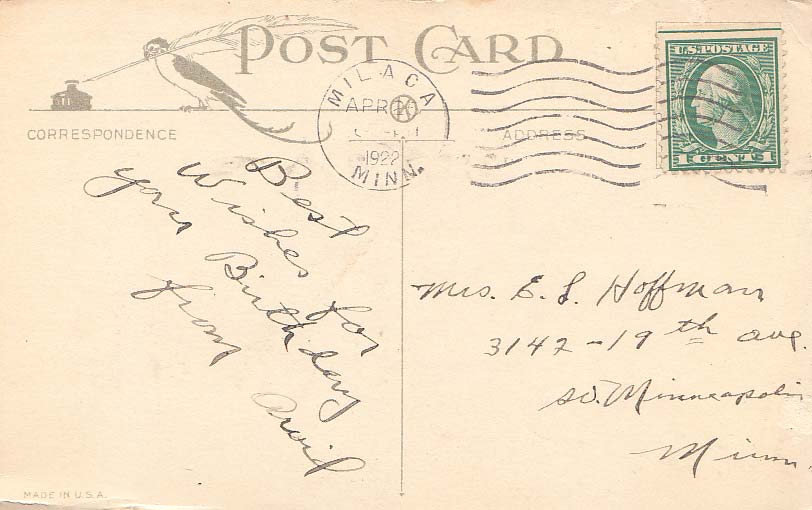 POST CARD
MILACA
APR
1922
MINN.
U.S. POSTAGE
1 CENTS 1
CORRESPONDENCE
ADDRESS
Best
Wishes for
your Birthday
from
Arvid
Mrs. E. L. Hoffman
3142 - 19th ave.
so. Minneapolis
Minn.
MADE IN U.S.A.